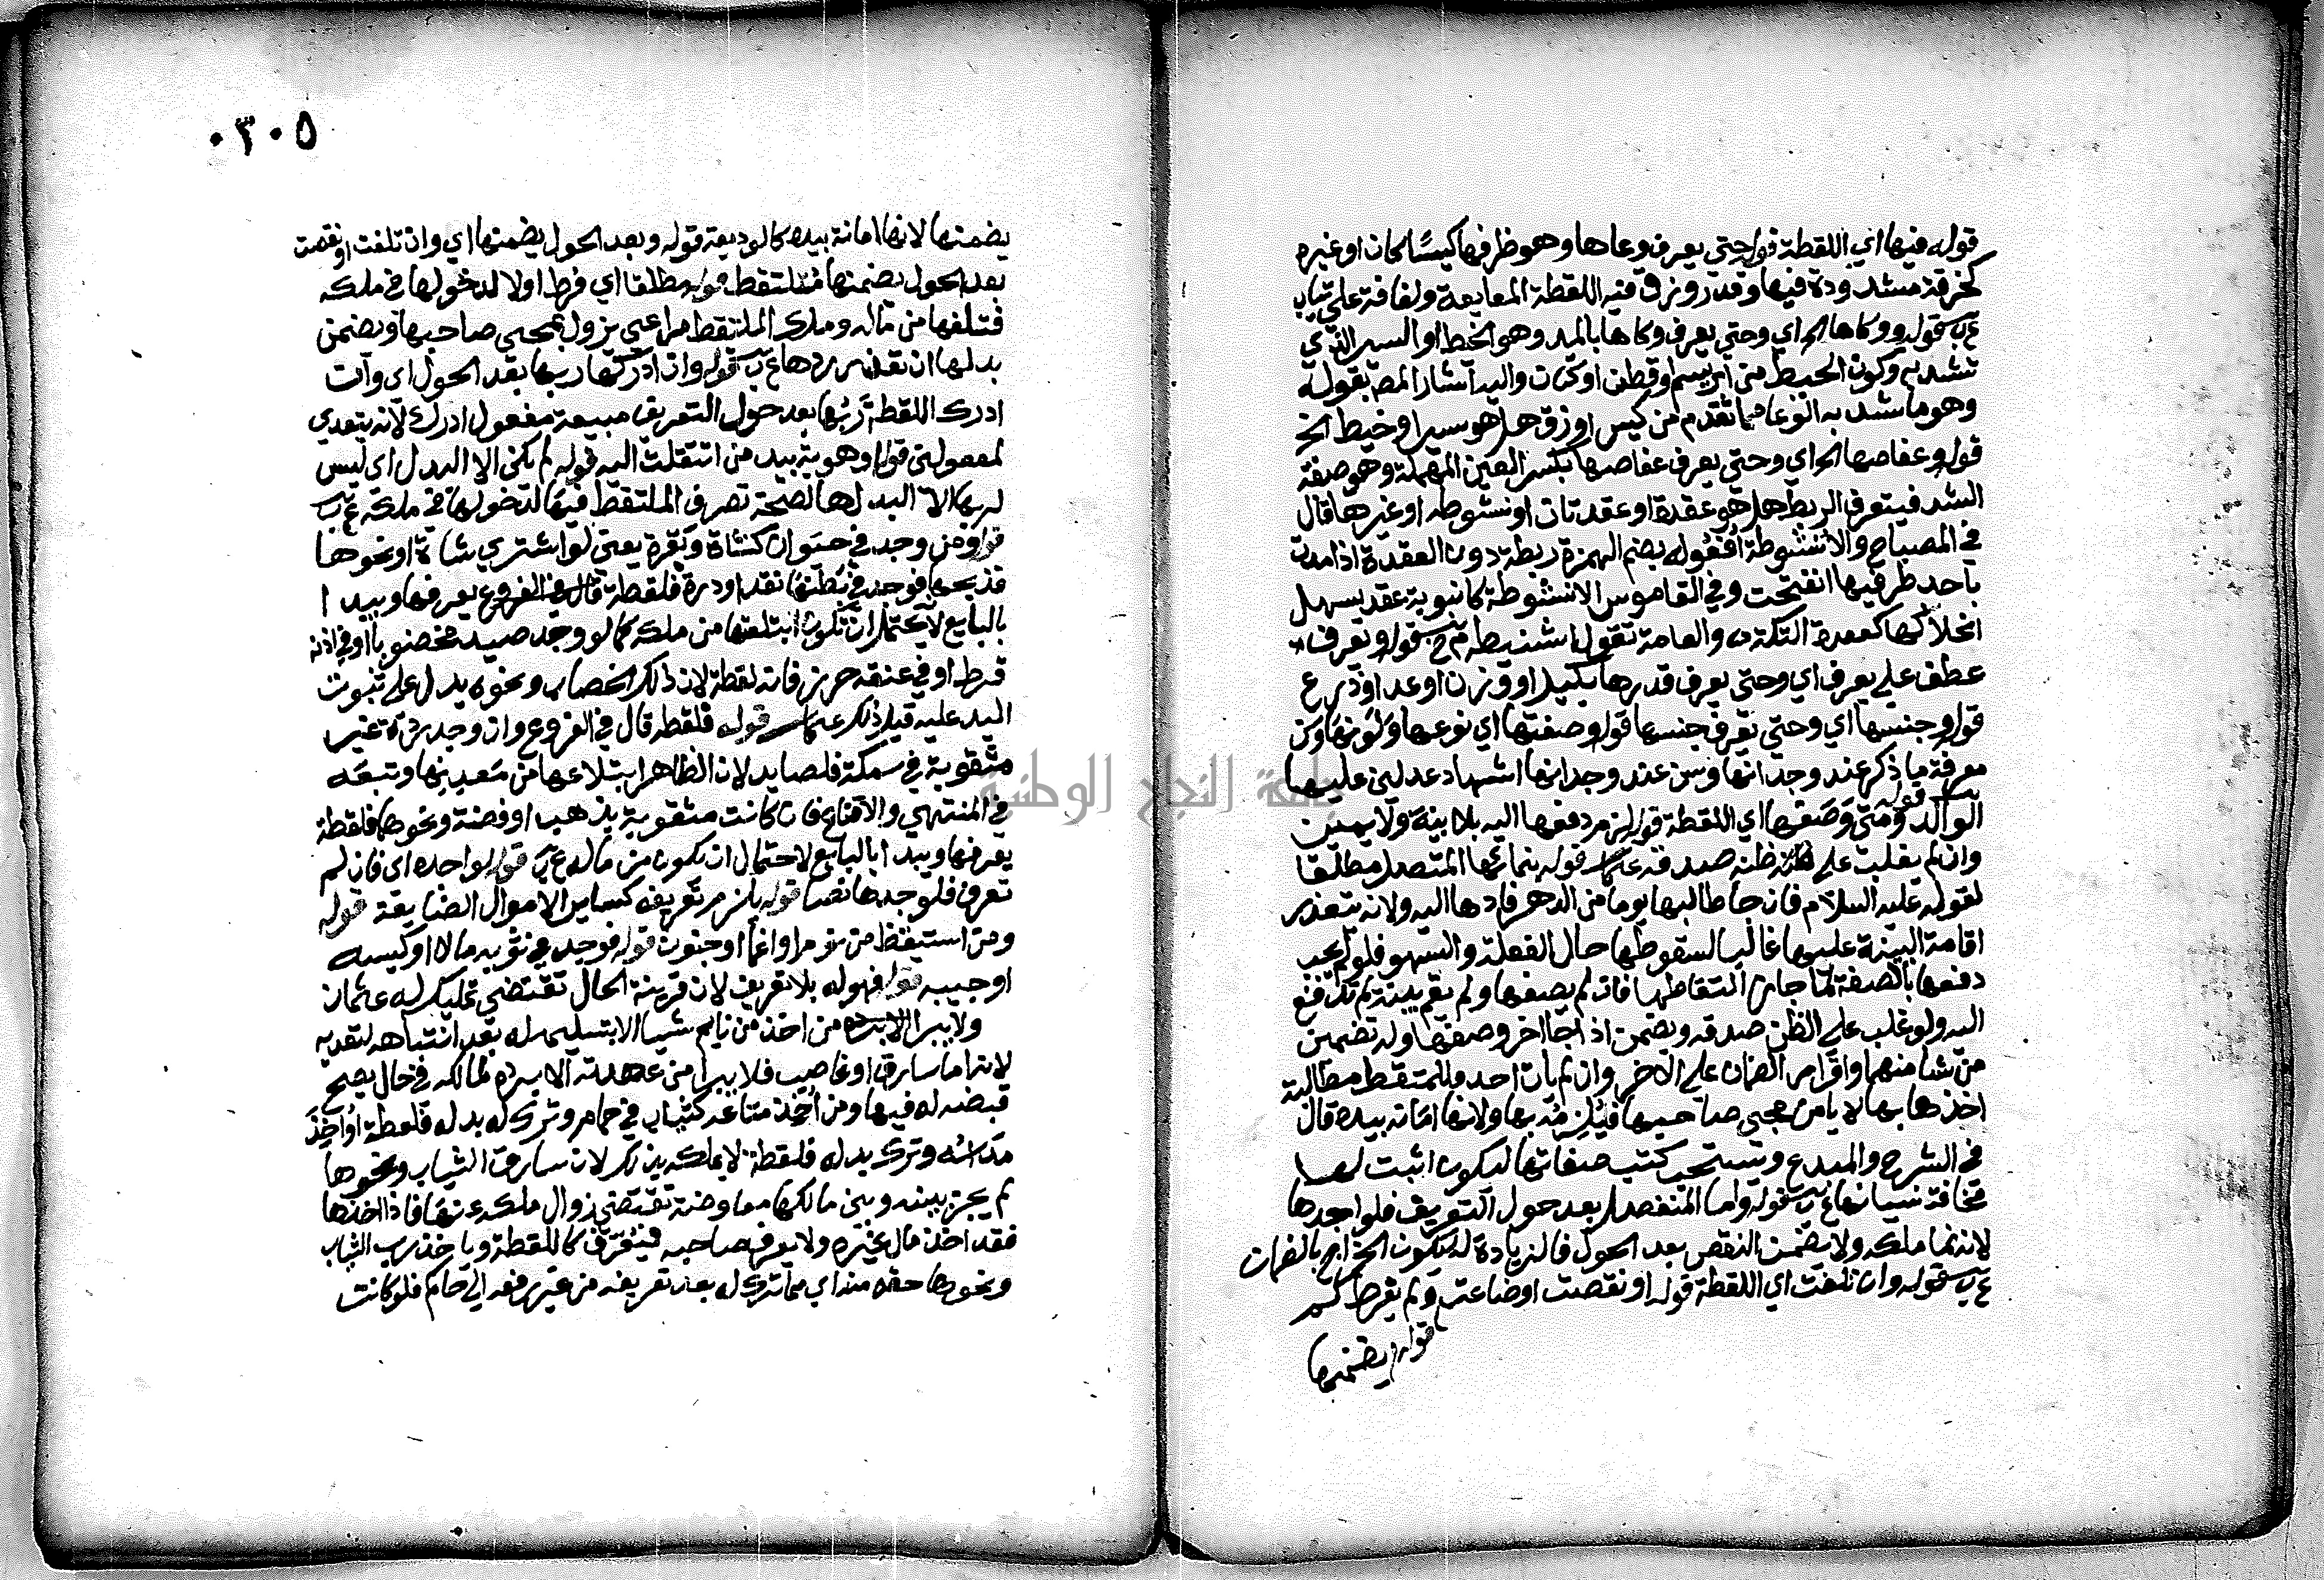 قوله فيها اي اللقطة قوله حتي يعرف وعاها وهو ظرفها كيسا كان او غيره
كخرقة مشدودة فيها وقدر وزق فيه اللقطة المايعة ولفافة علي ثياب
ع ب قوله ووكاها الخ اي وحتي يعرف وكاها بالمد وهو الخيط او السير الذي
تشد به وكون الخيط من ابريسم او قطن او كتان واليه اشار المص بقوله
وهو ما شد به الوعا مما تقدم من كيس او زق هل هو سير او خيط الخ
قوله وعفاصها الخ اي وحتي يعرف عفاصها بكسر العين المهملة وهو صفة
الشد فيتعرف الربط هل هو عقدة او عقدتان او نشوطه او غيرها قال
في المصباح والانشوطة افعوله بضم الهمزة ربطة دون العقدة اذا مدت
باحد طرفيها انفتحت وفي القاموس الانشوطة كانبوبة عقد يسهل
انحلالها كعقدة التكة والعامة تقول اشنيطه م خ قوله وتعرف
عطف علي يعرف اي وحتي يعرف قدرها بكيل او وزن او عد او ذرع
قوله وجنسها اي وحتي تعرف جنسها قوله وصفتها اي نوعها ولونها وكن
معرفة ما ذكر عند وجدانها وسن عند وجدانها اشهاد عدلين عليها
الوالد قوله ومتي وصفها اي اللقطة قوله لزم دفعها اليه بلا بينة ولا يمين
وان لم يغلب علي ظنه صدقه قوله بنمائها المتصل مطلقا
لقوله عليه السلام فان جا طالبها يوما من الدهر فادها اليه ولانه يتعذر
اقامة البينة عليها غالبا لسقوطها حال الغفلة والسهو فلو لم يجب
دفعها بالصفة لما جاز التقاطها فان لم يصفها ولم يقم بينة لم تدفع
اليه ولو غلب علي الظن صدقه ويضمن اذا جا اخر وصفها وله تضمين
من شا منهما وقرار الضمان علي الاخر وان لم يات احد وللملتقط مطالبة
اخذها بها لا يامن مجي صاحبها فيلزمه بها ولانها امانة بيده قال
في الشرح والمبدع وتستحب كتب صفاتها ليكون اثبت لها
مخافة نسيانها ع ب قوله واما المنفصل بعد حول التعريف فلواجدها
لانه نما ملكه ولا يضمن النقص بعد الحول فالزيادة له ليكون الخراج بالضمان
ع ب قوله وان تلفت اي اللقطة قوله او نقصت او ضاعت ولم يفرط لم
قوله يضمنها
٠٣٠٥
يضمنها لانها امانة بيده كالوديعة قوله وبعد الحول يضمنها اي وان تلفت او نقصت
بعد الحول يضمنها ملتقط قوله مطلقا اي فرط او لا لدخولها في ملكه
فتلفها من ماله وملك الملتقط مراعي يزول بمجي صاحبها ويضمن
بدلها ان تعذر ردها ع ب قوله وان ادركها ربها بعد الحول اي وان
ادرك اللقطة ربها بعد حول التعريف مبيعة مفعول ادرك لانه يتعدي
لمفعولين قوله او موهوبة بيد من انتقلت اليه قوله لم يكن الا البدل اي ليس
لربها الا البدل لها لصحة تصرف الملتقط فيها لدخولها في ملكه ع ب
قوله ومن وجد في حيوان كشاة وبقرة يعني لو اشتري شاة او نحوها
فذبحها فوجد في بطنها نقدا او درة فلقطة قال في الفروع يعرفها ويبدا
بالبايع لانه يحتمل ان تكون ابتلعتها من ملكه كما لو وجد صيدا مخضوبا او في اذنه
قرط او في عنقه حرز فانه لقطة لان ذلك الخضاب ونحوه يدل علي ثبوت
اليد عليه قبل ذلك قوله فلقطه قال في الفروع وان وجد درة غير
مثقوبة في سمكة فلصايد لان الظاهر ابتلاعها من معدنها وتبعه
في المنتهي والاقناع فان كانت مثقوبة بذهب او فضة ونحوها فلقطة
يعرفها ويبدا بالبايع لاحتمال ان يكون من ماله ع ب قوله لواجده اي فان لم
تعرف فلواجدها نصا قوله يلزم تعريفه كساير الاموال الضايعة قوله
ومن استيقظ من نوم او اغما او جنون قوله فوجد في ثوبه مالا او كيسه
او جيبه قوله فهو له بلا تعريف لان قرينة الحال تقتضي تمليك له عثمان
ولا يبرا من اخذ من نايم شيا الا بتسليمه له بعد انتباهه لتعديه
لانه اما سارق او غاصب فلا يبرا من عهدته الا برده لمالكه في حال يصح
قبضه له فيها ومن اخذ متاعه كثياب في حمام وترك له بدله فلقطة او اخذ
مداسه وترك بدله فلقطة لا يملكه بذلك لان سارق الثياب ونحوها
لم يجر بينه وبين مالكها معاوضة تقتضي زوال ملكه عنها فاذا اخذها
فقد اخذ مال غيره ولا يعرف صاحبه فيعرف كاللقطة وياخذ رب الثياب
ونحوها حقه منه اي مما ترك له بعد تعريفه من غير رفعه الي حاكم فلو كانت
جامعة النجاح الوطنية